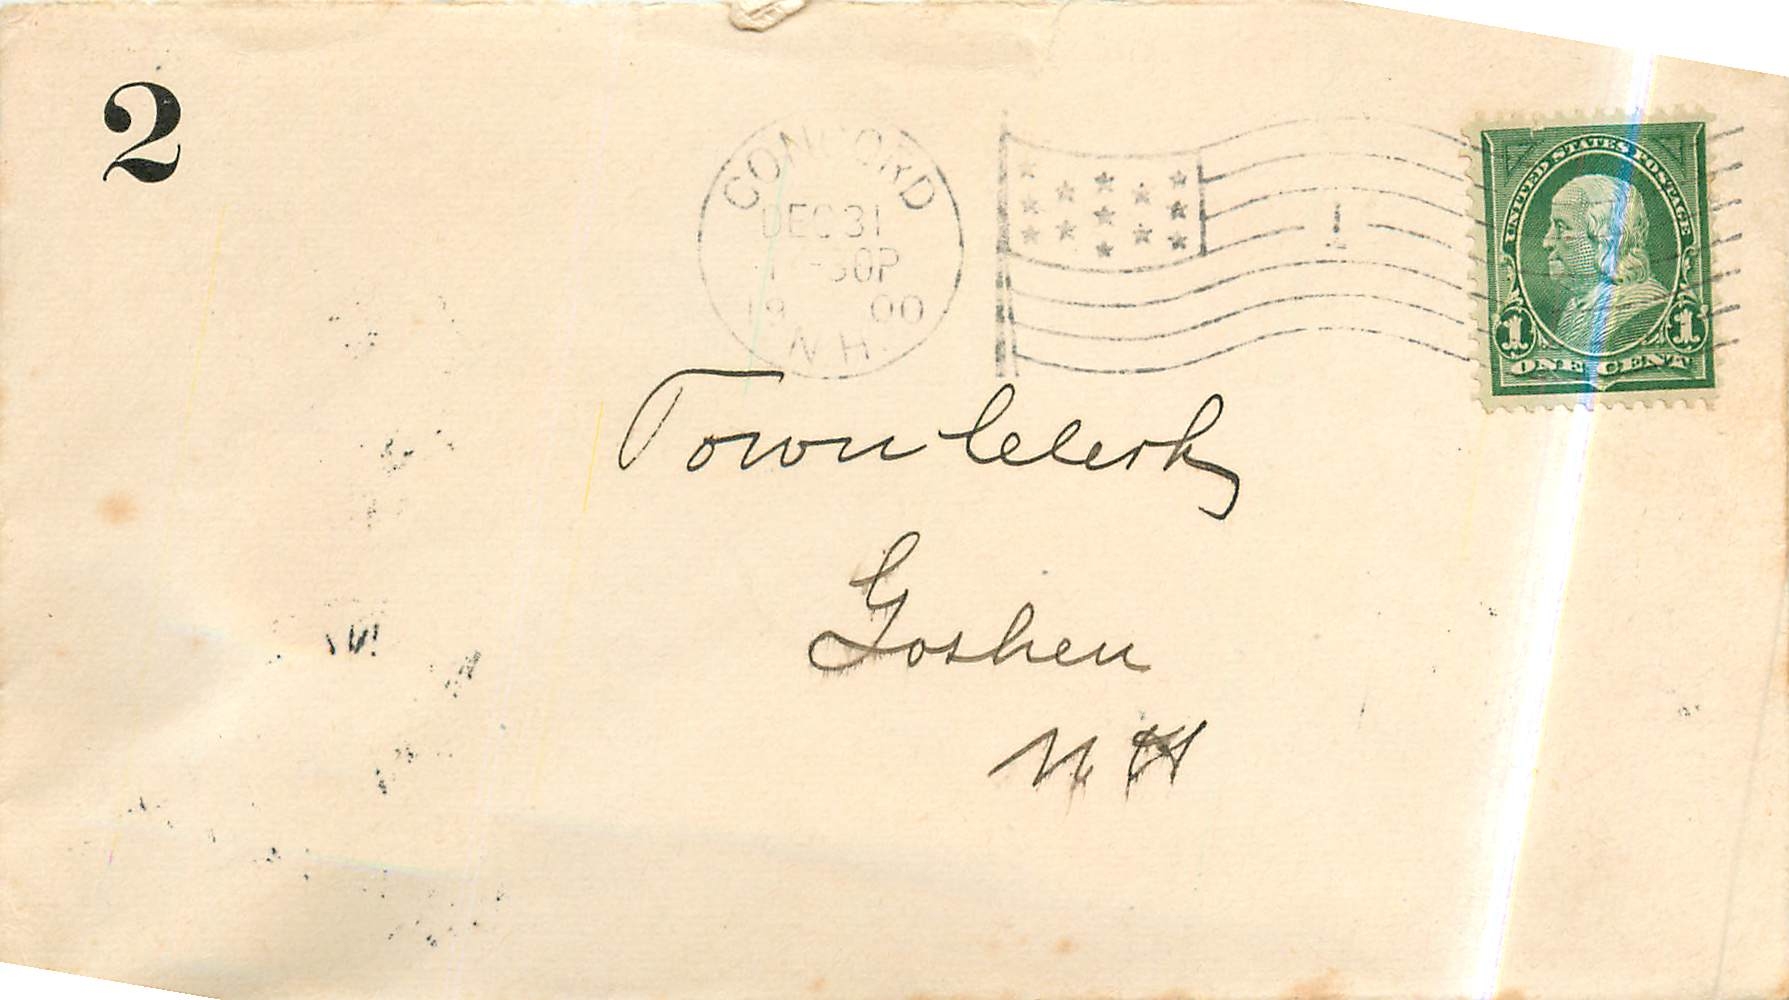 2
CONCORD
DEC 31
-30P
19 00
N.H.
1
UNITED STATES POSTAGE
1 1
ONE CENT
Town Clerk
Goshen
N H